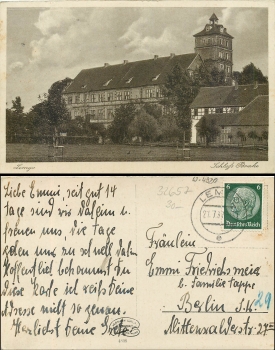 Lemgo
Schloß Brake
12-4920
31657
LEMGO
6 6
Deutsches Reich
Liebe Emmi, seit gut 14
Tage sind wir daheim u.
freuen uns, die Tage
gehen nur zu schnell dahin
Hoffentlich bekommst du
diese Karte ich weiß Deine
Adresse nicht so genau.
Herzliebst Deine Grete
Fräulein
Emmi Friedrichsmeier
b. Familie Pappe
Berlin S.W. 29
Mittenwalderstr. 27